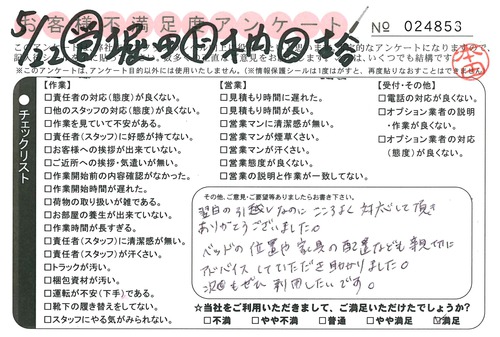 お客様不満足度アンケート
No 024853
5/2
※このアンケートは、アンケート目的以外には使用いたしません。（※情報保護シールは1度はがすと、再度貼りなおすことはできません）
チェックリスト
【作業】
□責任者の対応（態度）が良くない。
□他のスタッフの対応（態度）が良くない。
□作業を見ていて不安がある。
□責任者（スタッフ）に好感が持てない。
□お客様への挨拶が出来ていない。
□ご近所への挨拶・気遣いが無い。
□作業開始前の内容確認がなかった。
□作業開始時間が遅れた。
□荷物の取り扱いが雑である。
□お部屋の養生が出来ていない。
□作業時間が長すぎる。
□責任者（スタッフ）に清潔感が無い。
□責任者（スタッフ）が汗くさい。
□トラックが汚い。
□梱包資材が汚い。
□運転が不安（下手）である。
□靴下の履き替えをしてない。
□スタッフにやる気がみられない。
【営業】
□見積もり時間に遅れた。
□見積もり時間が長い。
□営業マンに清潔感が無い。
□営業マンが煙草くさい。
□営業マンが汗くさい。
□営業態度が良くない。
□営業の説明と作業が一致してない。
【受付・その他】
□電話の対応が良くない。
□オプション業者の説明
・作業が良くない。
□オプション業者の対応
（態度）が良くない。
その他、ご意見・ご要望等ありましたらお書き下さい。
翌日の引越しなのに こころよく対応して頂き
ありがとうございました。
ベッドの位置や家具の配置なども親切に
アドバイスしていただき助かりました。
次回もぜひ利用したいです。
☆当社をご利用いただきまして、ご満足いただけたでしょうか？
□不満 □やや不満 □普通 □やや満足 ☑満足